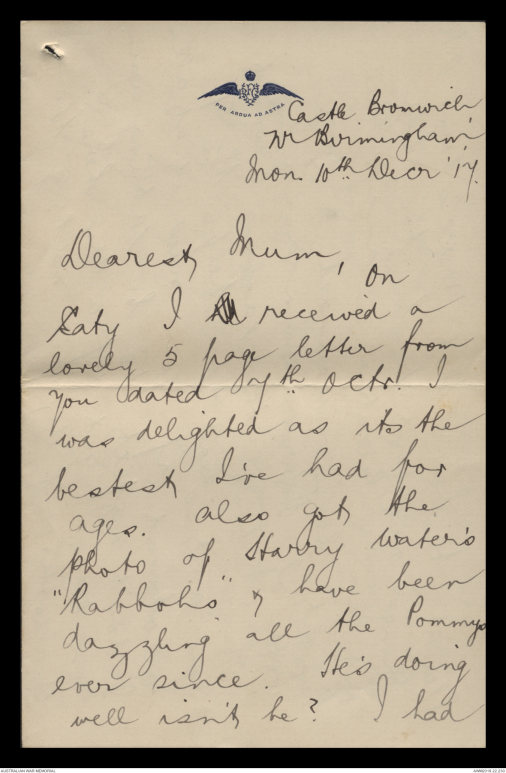 PER ARDUA AD ASTRA
Castle Bromwich
Nr Birmingham,
Mon. 10th Decr '17.
Dearest Mum,
On
Saty I received a
lovely 5 page letter from
you dated 7th Octr. I
was delighted as its the
bestest I've had for
ages. Also got the
photo of Harry Water's
"Rabbohs" & have been
dazzling all the Pommys
ever since. He's doing
well isn't he? I had
AUSTRALIAN WAR MEMORIAL